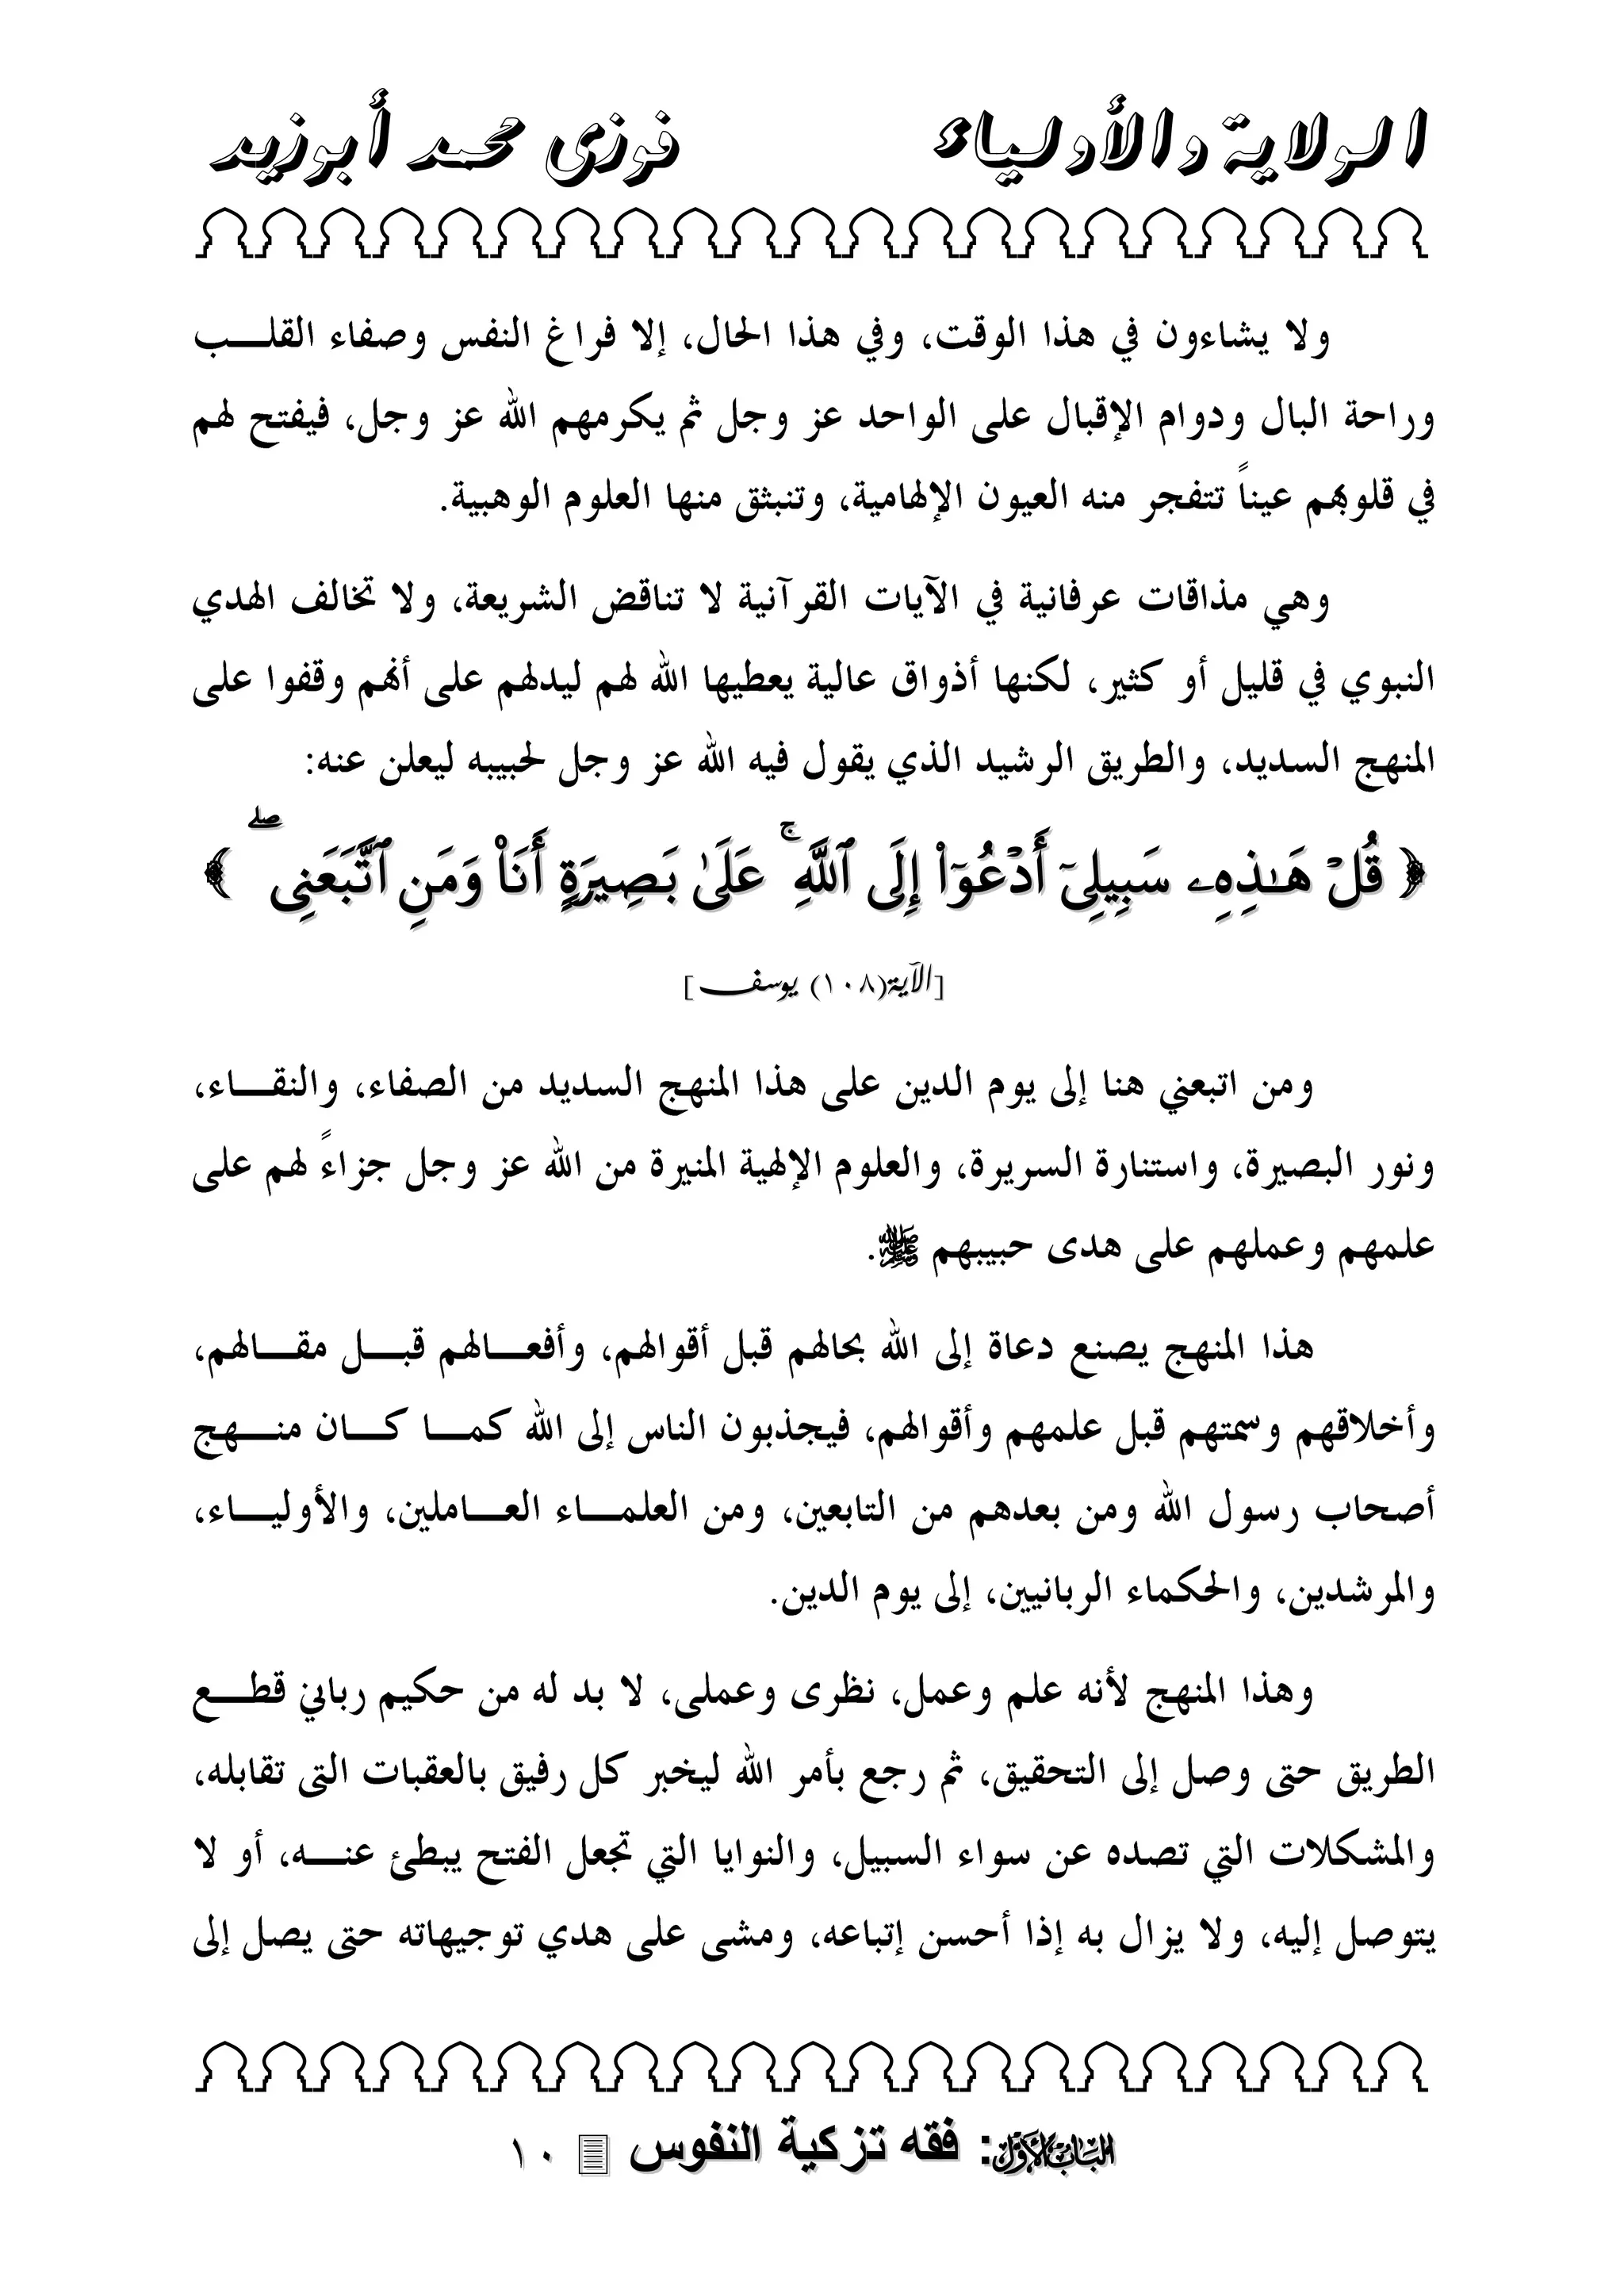 الولاية والأولياء فوزى محمد أبوزيد
ولا يشاءون في هذا الوقت، وفي هذا الحال، إلا فراغ النفس وصفاء القلـــب
وراحة البال ودوام الإقبال على الواحد عز وجل ثم يكرمهم الله عز وجل، فيفتح لهم
في قلوبهم عيناً تتفجر منه العيون الإلهامية، وتنبثق منها العلوم الوهبية.
وهي مذاقات عرفانية في الآيات القرآنية لا تناقض الشريعة، ولا تخالف الهدي
النبوي في قليل أو كثير، لكنها أذواق عالية يعطيها الله لهم ليدلهم على أنهم وقفوا على
المنهج السديد، والطريق الرشيد الذي يقول فيه الله عز وجل لحبيبه ليعلن عنه:
﴿ قُلْ هَـٰذِهِۦ سَبِيلِىٓ أَدْعُوٓا۟ إِلَى ٱللَّهِ ۚ عَلَىٰ بَصِيرَةٍ أَنَا۠ وَمَنِ ٱتَّبَعَنِى ۖ ﴾
[الآية(١٠٨) يوسف]
ومن اتبعني هنا إلى يوم الدين على هذا المنهج السديد من الصفاء، والنقـــاء،
ونور البصيرة، واستنارة السريرة، والعلوم الإلهية المنيرة من الله عز وجل جزاءً لهم على
علمهم وعملهم على هدى حبيبهم ﷺ.
هذا المنهج يصنع دعاة إلى الله بحالهم قبل أقوالهم، وأفعـــالهم قبـــل مقـــالهم،
وأخلاقهم وسمتهم قبل علمهم وأقوالهم، فيجذبون الناس إلى الله كمـــا كـــان منـــهج
أصحاب رسول الله ومن بعدهم من التابعين، ومن العلمـــاء العـــاملين، والأوليـــاء،
والمرشدين، والحكماء الربانيين، إلى يوم الدين.
وهذا المنهج لأنه علم وعمل، نظرى وعملى، لا بد له من حكيم رباني قطـــع
الطريق حتى وصل إلى التحقيق، ثم رجع بأمر الله ليخبر كل رفيق بالعقبات التى تقابله،
والمشكلات التي تصده عن سواء السبيل، والنوايا التي تجعل الفتح يبطئ عنـــه، أو لا
يتوصل إليه، ولا يزال به إذا أحسن إتباعه، ومشى على هدي توجيهاته حتى يصل إلى
الباب الأول: فقه تزكية النفوس ١٠